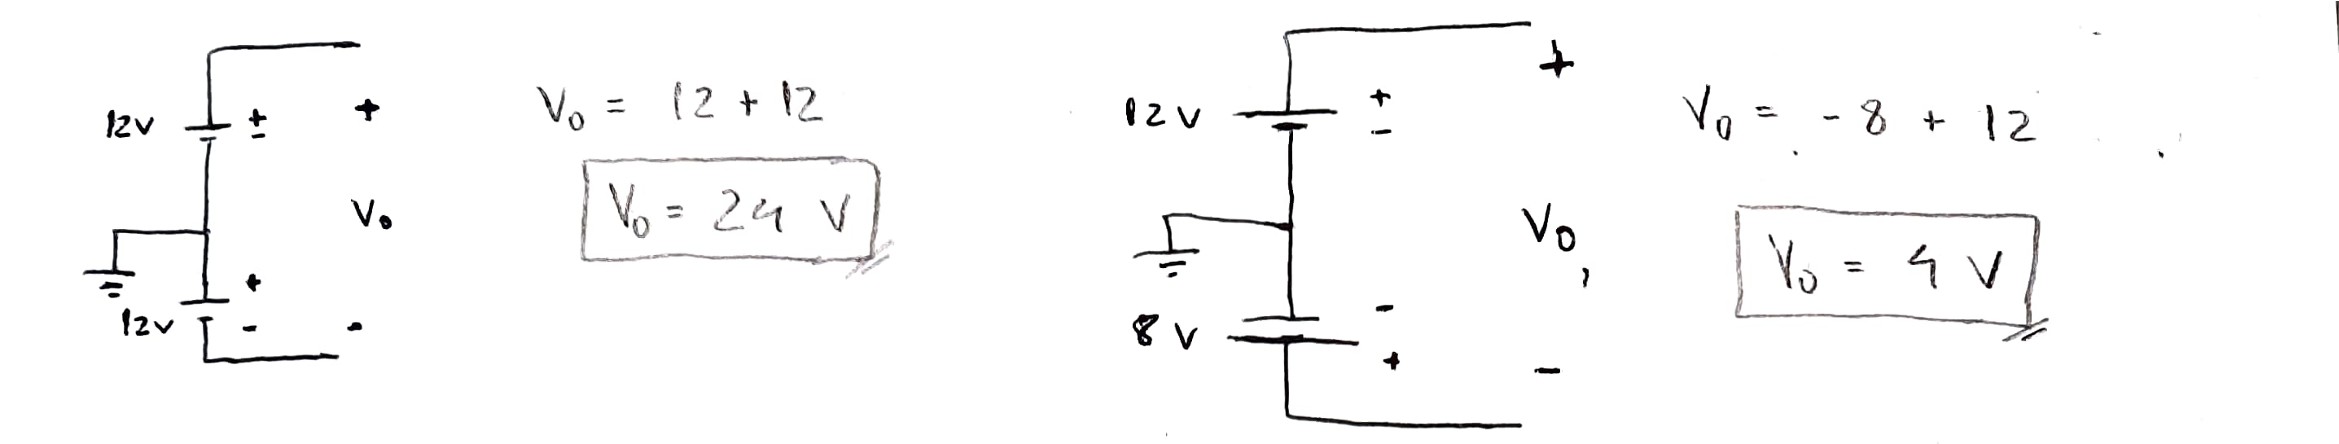 12V
+
-
+
V₀
+
12V
-
-
V₀ = 12 + 12
V₀ = 24 V
12V
+
-
+
V₀
8V
-
+
-
V₀ = - 8 + 12
V₀ = 4 V